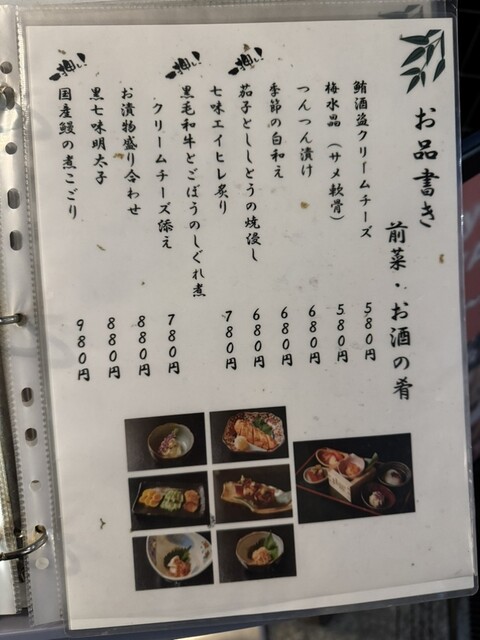 お品書き
前菜・お酒の肴
鮪酒盗クリームチーズ 580円
梅水晶(サメ軟骨) 580円
つんつん漬け 680円
季節の白和え 680円
一押し!
茄子とししとうの焼浸し 680円
七味エイヒレ炙り 780円
一押し!
黒毛和牛とごぼうのしぐれ煮
クリームチーズ添え 780円
お漬物盛り合わせ 880円
黒七味明太子 880円
一押し!
国産鰻の煮こごり 980円